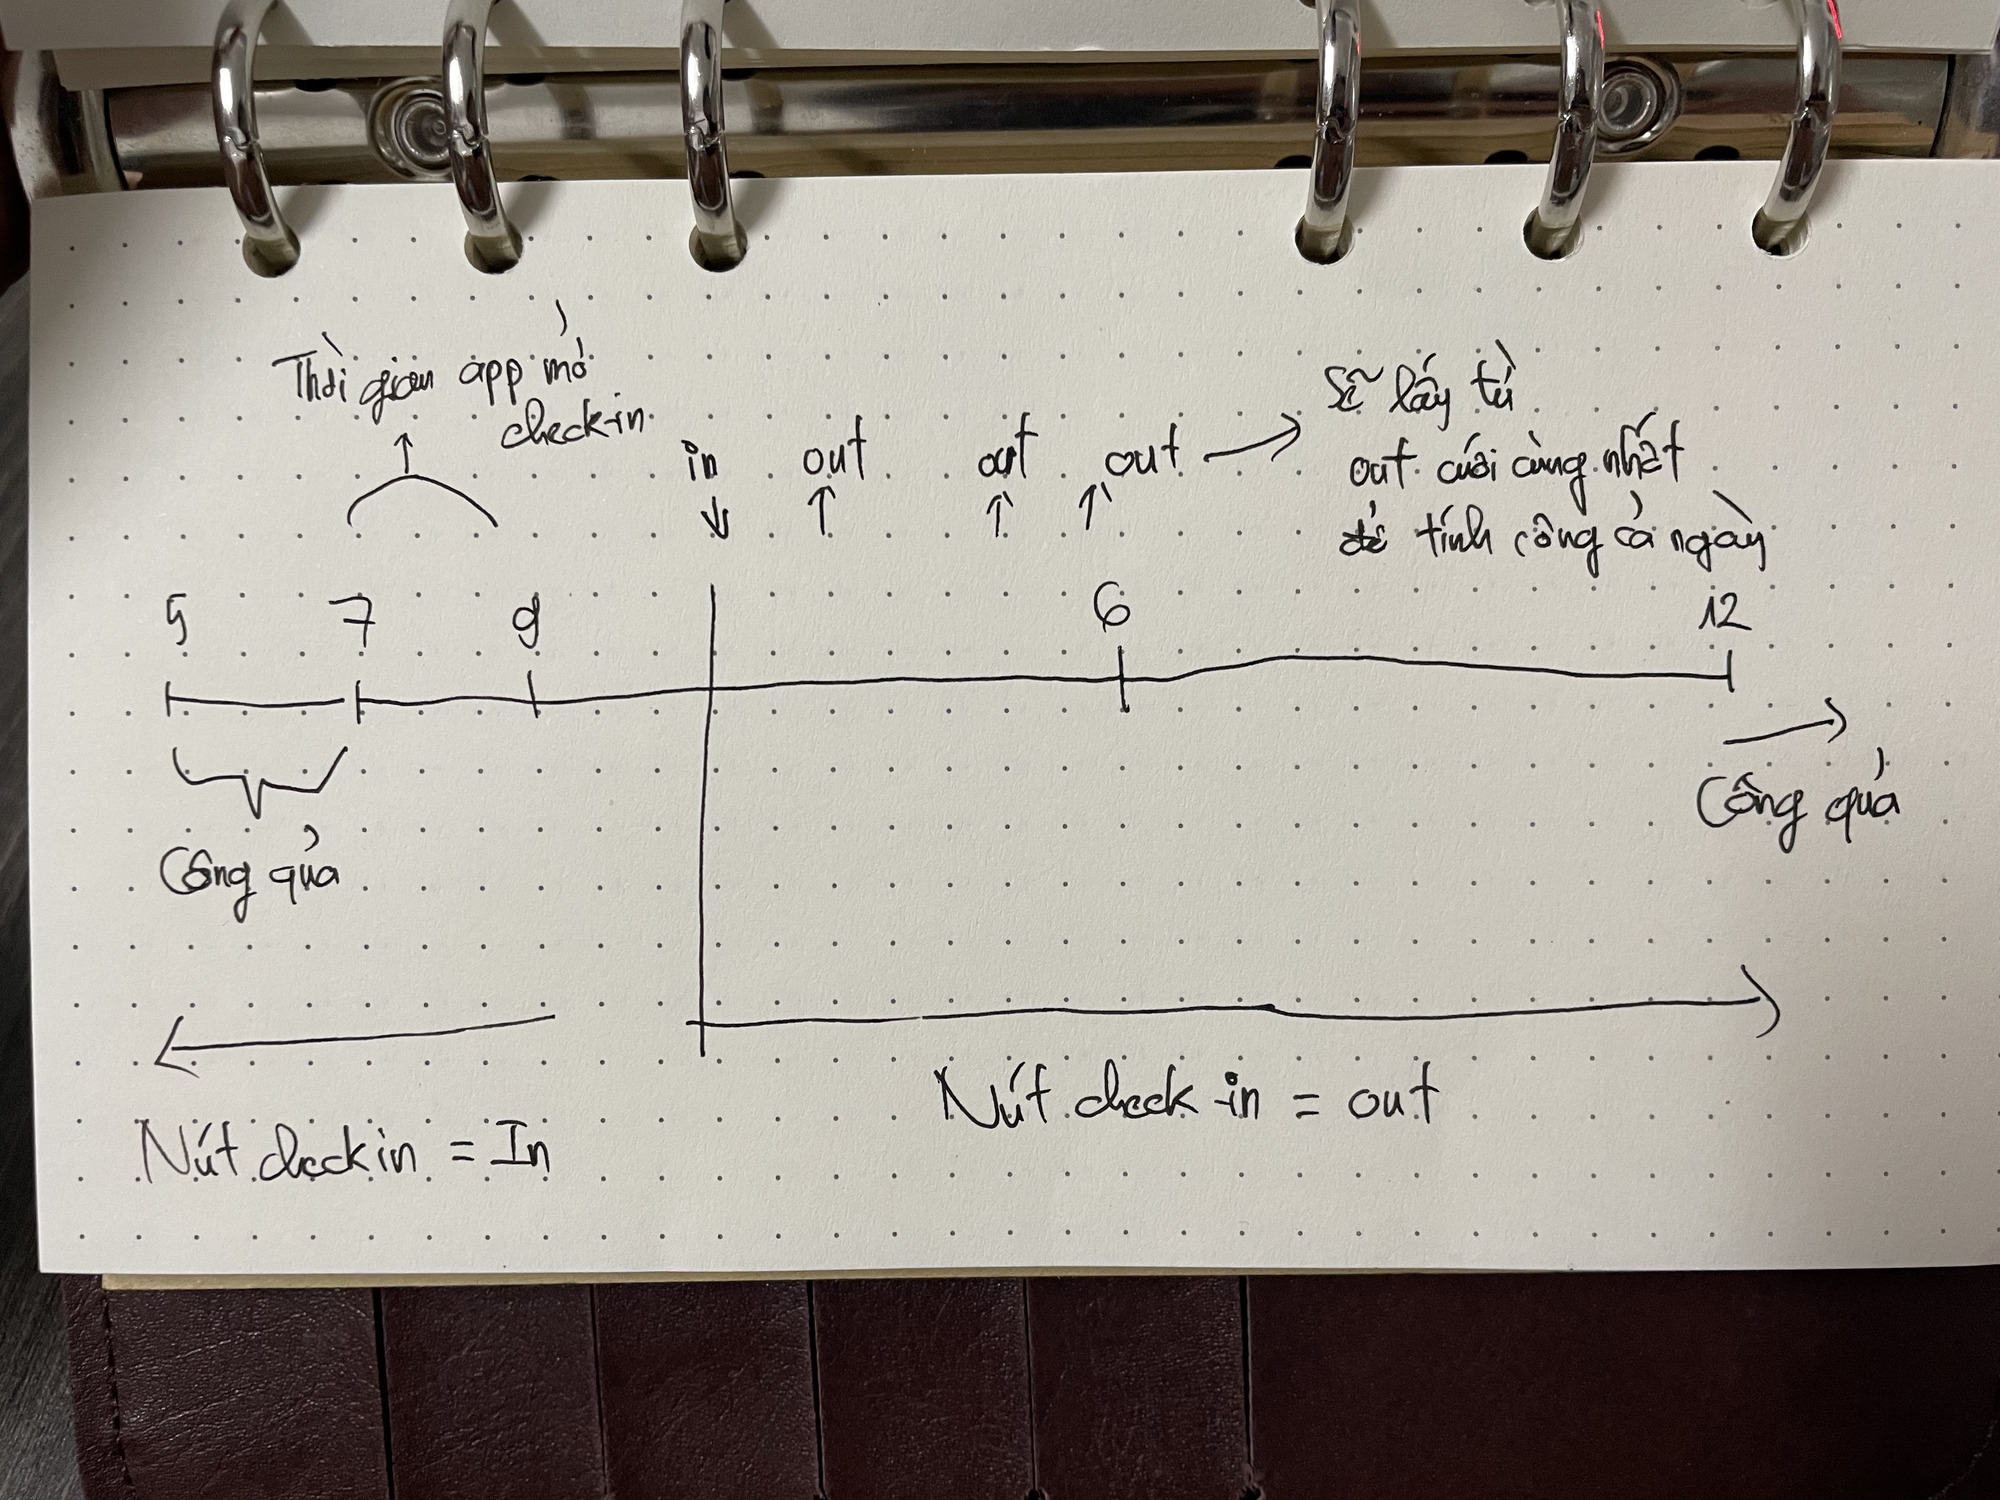 Thời gian app mở
check-in
in out out out → Sẽ lấy từ
out cuối cùng nhất
để tính công cả ngày
5 7 9 6 12
Công quả
Công quả
Nút check in = In
Nút check in = out